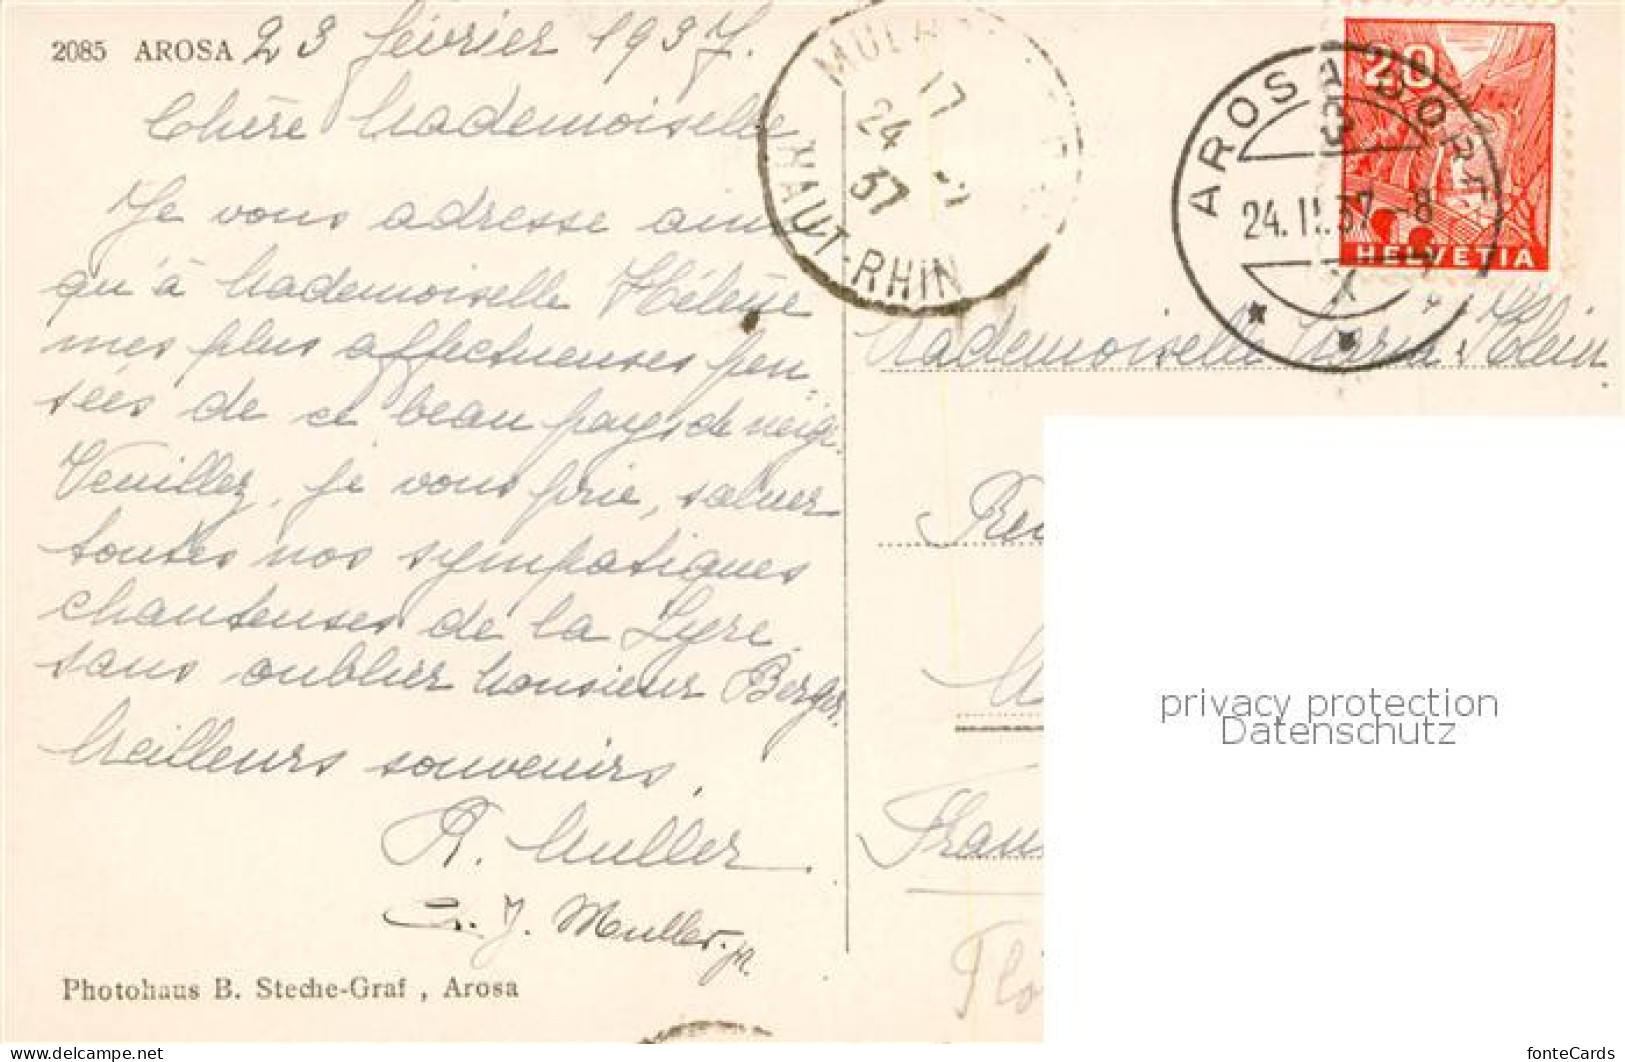 2085 AROSA 23 février 1937.
Chère Mademoiselle
Je vous adresse ainsi
qu'à Mademoiselle Helène
mes plus affectueuses pen-
sées de ce beau pays de neige.
Veuillez, je vous prie, saluer
toutes nos sympatiques
chanteuses de la Lyre,
sans oublier Monsieur Berger.
Meilleurs souvenirs,
R. Muller.
J. Muller. jr.
Photohaus B. Steche-Graf, Arosa
MUL
17
24
37
HAUT-RHIN
20
HELVETIA
AROSA DORF
3
24.II.37-8
Mademoiselle Maria Klein
privacy protection
Datenschutz
www.delcampe.net
fonteCards